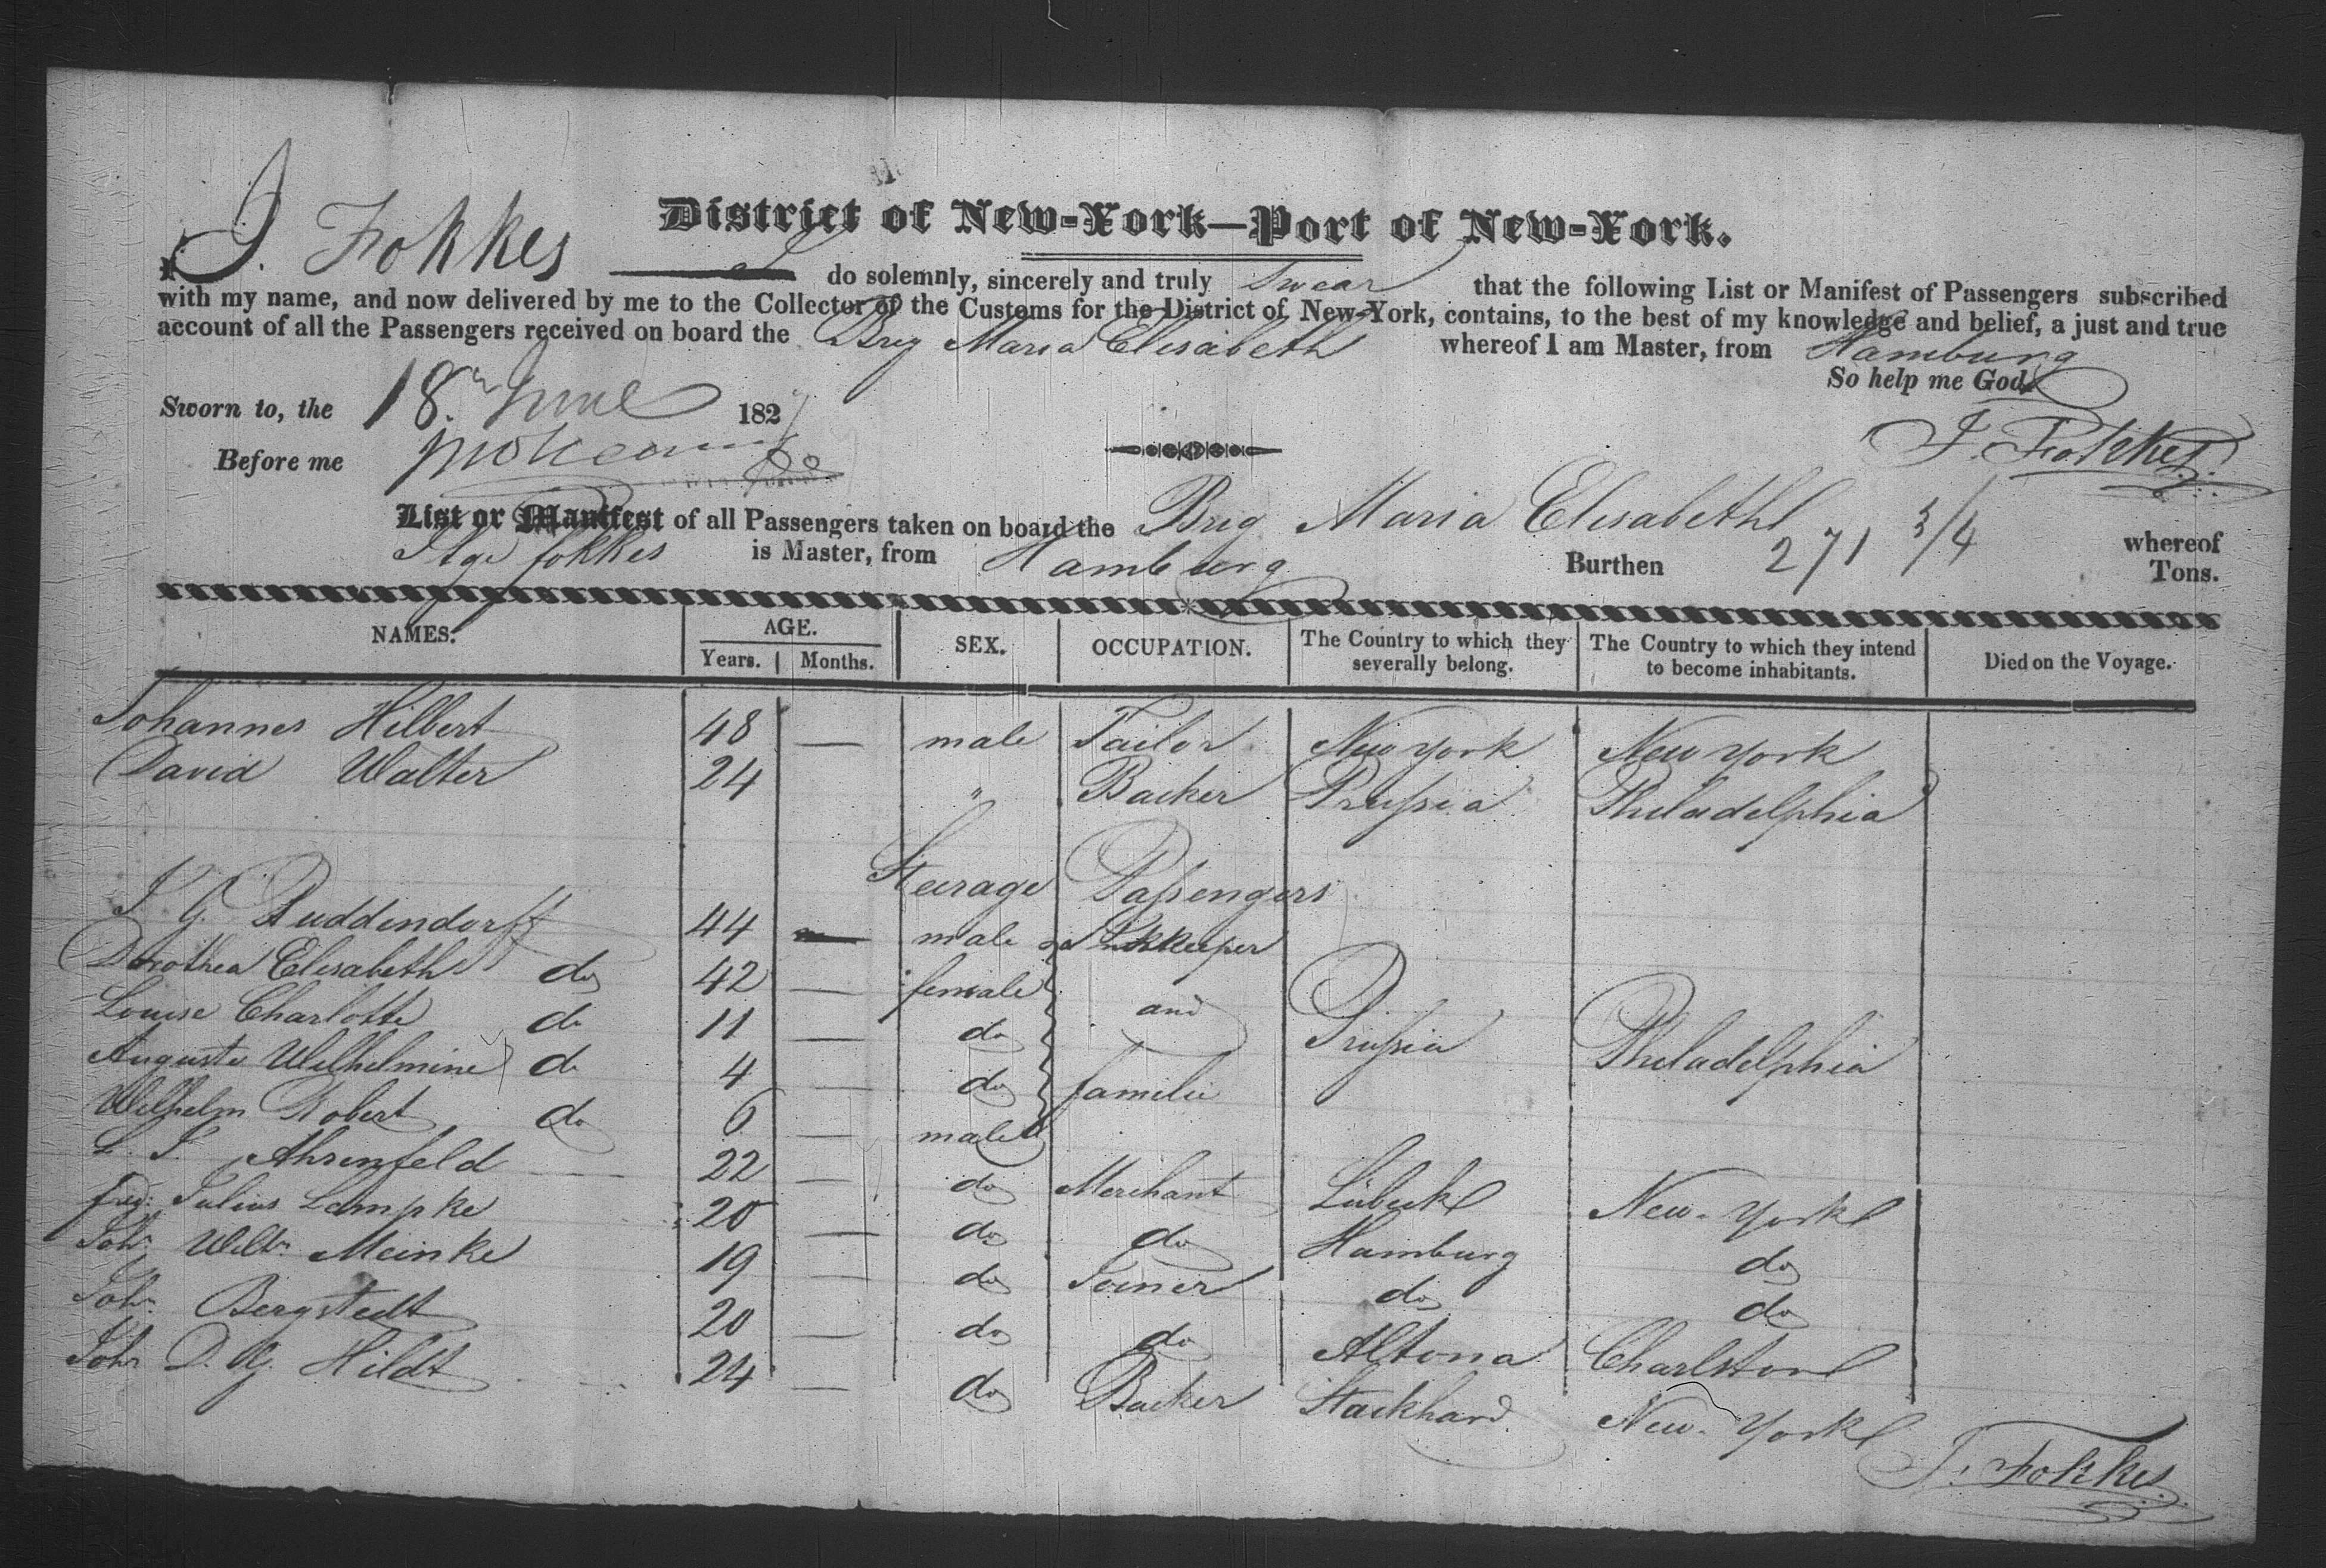 District of New-York—Port of New-York.
I J. Fokkes do solemnly, sincerely and truly swear that the following List or Manifest of Passengers subscribed
with my name, and now delivered by me to the Collector of the Customs for the District of New-York, contains, to the best of my knowledge and belief, a just and true
account of all the Passengers received on board the Brig Maria Elisabeth whereof I am Master, from Hamburg
So help me God.
Sworn to, the 18th June 1827
J. Fokkes
Before me
List or Manifest of all Passengers taken on board the Brig Maria Elisabeth whereof
Fokkes is Master, from Hamburg Burthen 271 3/4 Tons.
NAMES. AGE. SEX. OCCUPATION. The Country to which they severally belong. The Country to which they intend to become inhabitants. Died on the Voyage.
Years. Months.
Johannes Hilbert 48 — male Tailor New York New York
David Walter 24 " Backer Prussia Philadelphia
Steerage Passengers
J. G. Puddendorff 44 — male
Dorothea Elisabeth do 42 — female and
Louise Charlotte do 11 — do Prussia Philadelphia
Auguste Wilhelmine do 4 — do familie
Wilhelm Robert do 6 — male
L. J. Ahrenfeld 22 — do Merchant Lübeck New-York
Fred: Julius Lempke 20 — do do Hamburg do
Joh. Wilh. Meinke 19 — do Joiner do do
Joh. Bergstedt 20 — do do Altona Charlston
Joh. D. G. Hildt 24 — do Backer Stackhard New-York
J. Fokkes